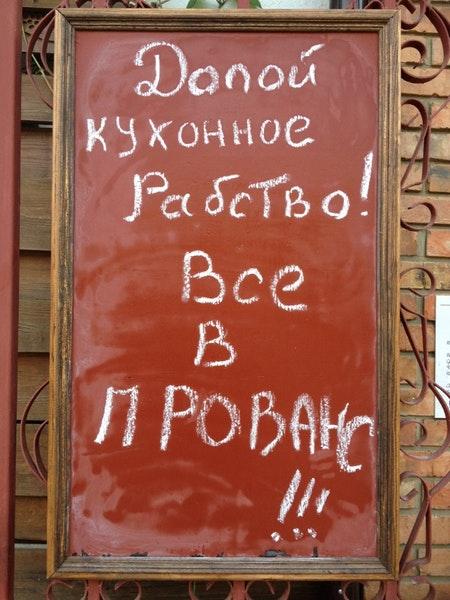 Долой
кухонное
Рабство!
Все
в
ПРОВАНС
!!!